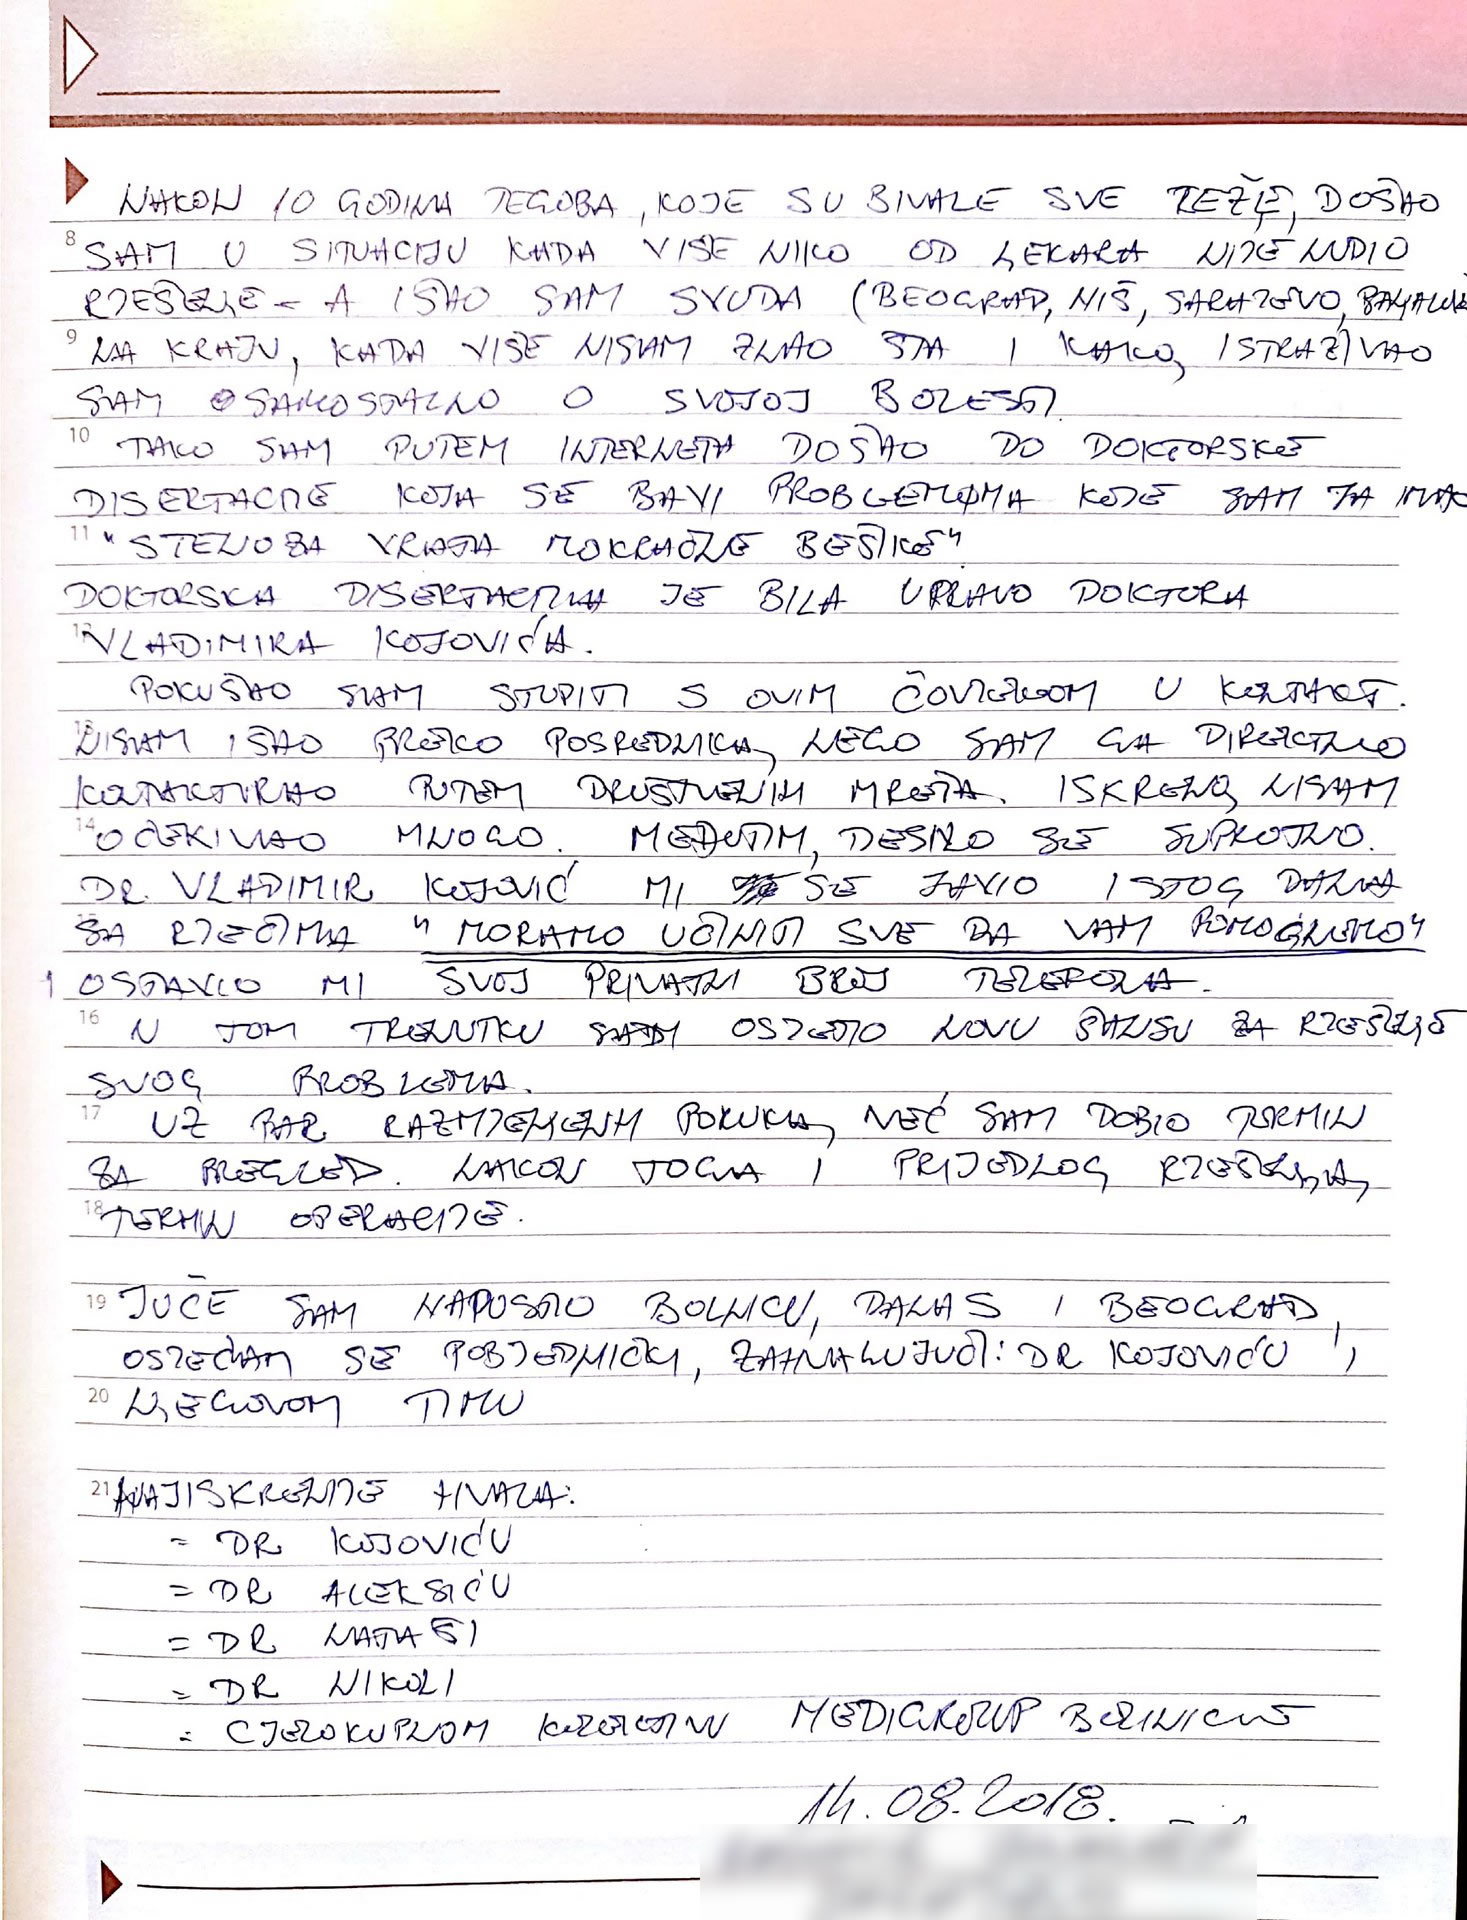 NAKON 10 GODINA TEGOBA, KOJE SU BIVALE SVE TEŽE, DOŠAO
8 SAM U SITUACIJU KADA VIŠE NIKO OD LEKARA NIJE NUDIO
RJEŠENJE - A IŠAO SAM SVUDA (BEOGRAD, NIŠ, SARAJEVO,
9 NA KRAJU, KADA VIŠE NISAM ZNAO ŠTA I KAKO, ISTRAŽIVAO
SAM SAMOSTALNO O SVOJOJ BOLESTI.
10 TAKO SAM PUTEM INTERNETA DOŠAO DO DOKTORSKE
DISERTACIJE KOJA SE BAVI PROBLEMIMA KOJE SAM JA IMAO
11 "STENOZA VRATA MOKRAĆNE BEŠIKE"
DOKTORSKA DISERTACIJA JE BILA UPRAVO DOKTORA
12 VLADIMIRA KOJOVIĆA.
POKUŠAO SAM STUPITI S OVIM ČOVJEKOM U KONTAKT.
13 NISAM IŠAO PREKO POSREDNIKA, NEGO SAM GA DIREKTNO
KONTAKTIRAO PUTEM DRUŠTVENIH MREŽA. ISKRENO, NISAM
14 OČEKIVAO MNOGO. MEĐUTIM, DESILO SE SUPROTNO.
DR. VLADIMIR KOJOVIĆ MI SE JAVIO ISTOG DANA
SA RJEČIMA "MORAMO UČINITI SVE DA VAM POMOGNEMO"
I OSTAVIO MI SVOJ PRIVATNI BROJ TELEFONA.
16 U TOM TRENUTKU SAM OSJETIO NOVU ŠANSU ZA RJEŠENJE
SVOG PROBLEMA.
17 UZ PAR RAZMJENJENIH PORUKA, VEĆ SAM DOBIO TERMIN
ZA PREGLED. NAKON TOGA I PRIJEDLOG RJEŠENJA,
18 TERMIN OPERACIJE.
19 JUČE SAM NAPUSTIO BOLNICU, DANAS I BEOGRAD,
OSJEĆAM SE POBJEDNIČKI, ZAHVALJUJUĆI: DR KOJOVIĆU I
20 NJEGOVOM TIMU
21 NAJISKRENIJE HVALA:
= DR KOJOVIĆU
= DR ALEKSIĆU
= DR NATAŠI
= DR NIKOLI
= CJELOKUPNOM KOLEKTIVU MEDIGROUP BOLNICE
14.08.2018.